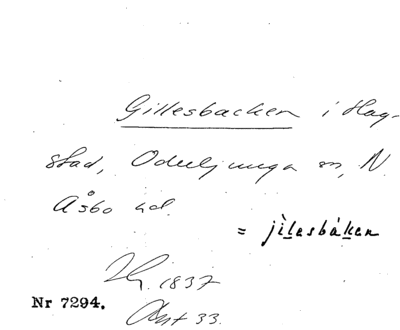 Gillesbacken i Hag-
stad, Oderljunga sn, N.
Åsbo hd.
= jìlesbáken
1837
Nr 7294.
33.